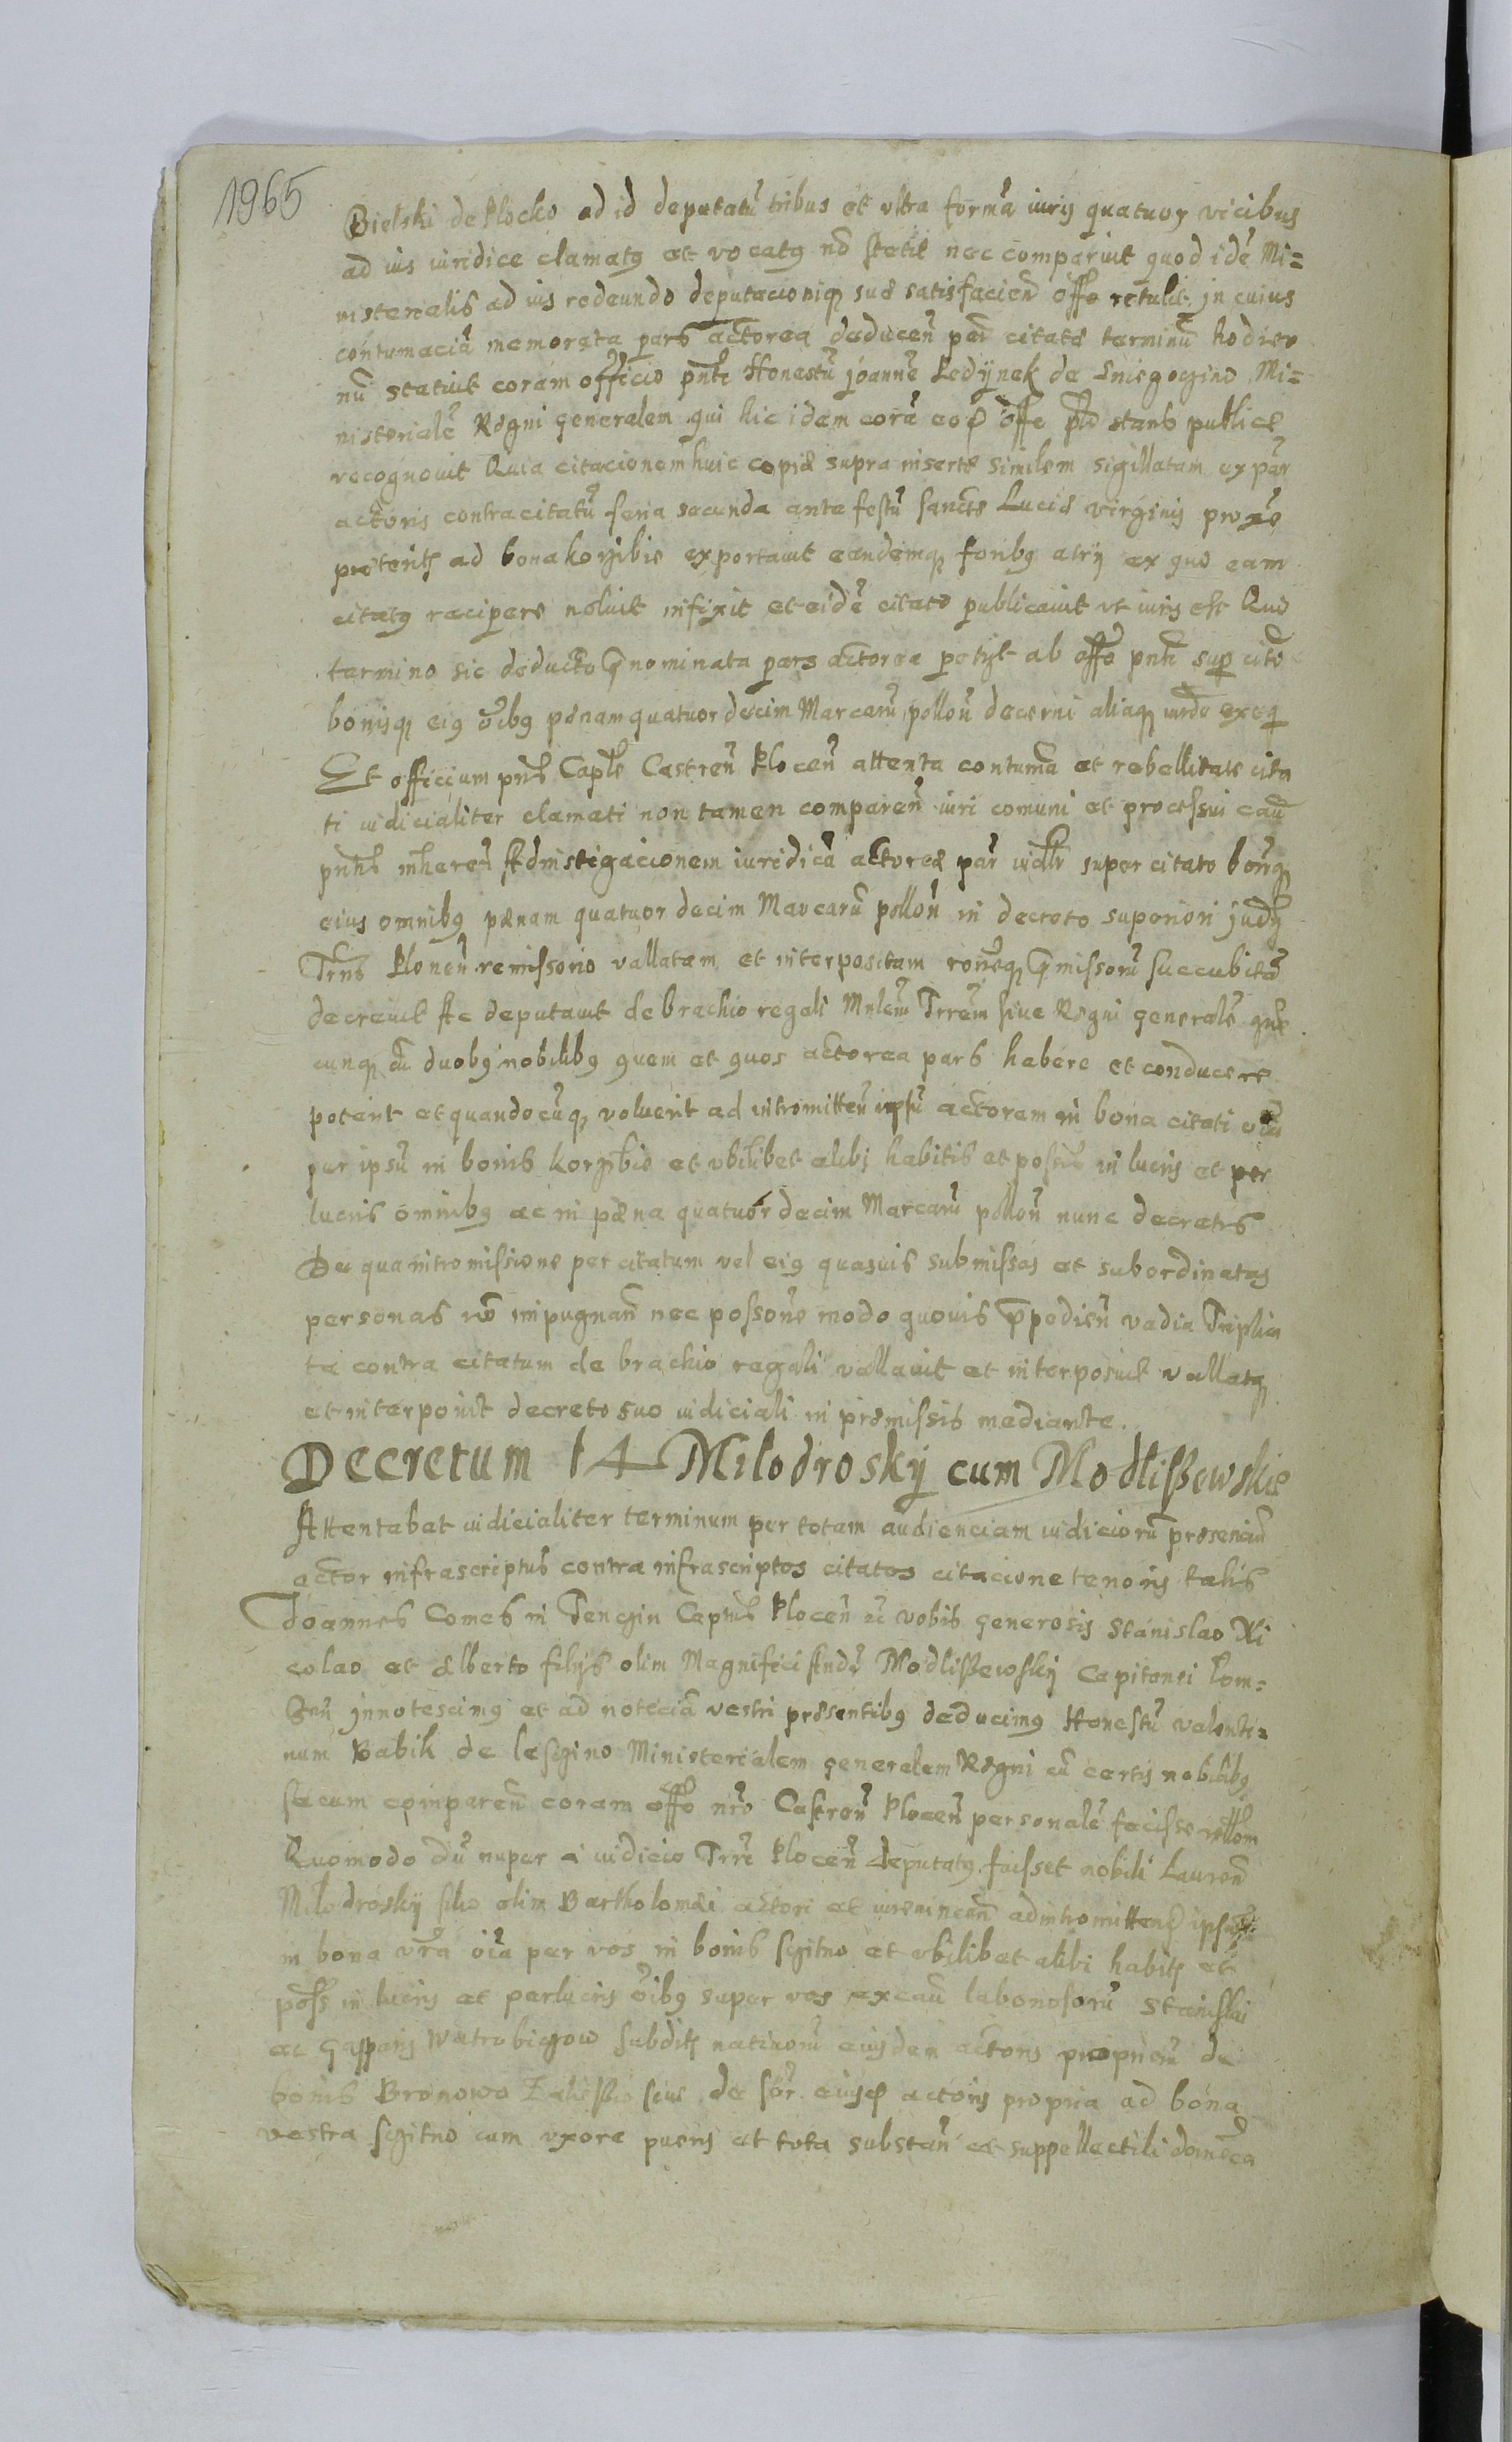 1965
Bielski de Plocko ad id deputatū tribus et vltra formā iuris quatuor vicibus
ad ius iuridice clamatꝰ et vocatꝰ nō stetit nec comparuit quod idē Mi=
nisterialis ad ius redeundo deputacioniqꝫ suę satisfacien̄ offo retulit in cuius
contumaciā memorata pars actorea deducen̄ per citatū terminū hodier
nū statuit coram officio pn̄ti Honestū Joannē Ledÿnek de Sniegocino Mi=
nisterialē Regni generalem qui hic idem corā eod offo stans publice
recognouit Quia citacionem huic copiæ supra insertę similem sigillatam ex par̄
actoris contra citatū feria secunda ante festū sanctę Lucię virginis proxe
preterits ad bona korzibie exportauit eandemqꝫ foribꝰ atrÿ ex quo eam
citatꝰ recipere noluit infixit et eidē citato publicauit vt iuris est Quo
termino sic deducto p̄nominata pars actorea petijt ab offo pn̄ti sup cito
bonisqꝫ eiꝰ oībꝰ pœnam quatuordecim Marcarū pollon̄ decerni aliaqꝫ exeq
Et officium pn̄s Caple Castren̄ Plocen̄ attenta contuma et rebellitate cita
ti iudicialiter clamati non tamen comparen̄ iuri comuni et processui cau
pn̄tis inheren̄ Ad instigacionem iuridicā actoreæ par̄ super citato bonisqꝫ
eius omnibꝰ pœnam quatuor decim Marcarū pollon̄ in decreto superiori
Trris Plonen̄ remissorio vallatam et interpositam p̄missorū succubitā
decreuit Ac deputauit de brachio regali Mnlem Trrem siue Regni generalē quē
cunqꝫ cū duobꝰ nobilibꝰ quem et quos actorea pars habere et conducere
poterit et quandocūqꝫ voluerit ad intromitten̄ ipsū actorem in bona citati oīa
per ipsū in bonis korzibie et vbilibet alibi habitis et possess in lucris et per
lucris omnibꝰ ac in pœna quatuor decim Marcarū pollon̄ nunc decretis
De qua intromissione per citatum vel eiꝰ quasuis submissas et subordinatas
personas nō impugnan̄ nec possone modo quouis p̄pedien̄ vadia Triplica
ta contra citatum de brachio regali vallauit et interposuit vallatqꝫ
et interponit decreto suo iudiciali in præmissis mediante.
Decretum 14 Milodroskÿ cum Modlißewskie
Attentabat iudicialiter terminum per totam audienciam iudiciorū præsenciū
actor infrascriptus contra infrascriptos citatos citacione tenoris talis
Joannes Comes in Tenczin Captus Plocen̄ ec vobis generosis Stanislao Ni
colao et Alberto filÿs olim Magnifici Andr Modlißewskÿ Capitanei Lom=
zen̄ innotescimꝰ et ad noticiā vestri præsentibꝰ deducimꝰ Honestū valenti=
num Babik de leszino Ministerialem generalem Regni cū certis nobilibꝰ
secum comparen̄ coram offo nr̄o Castren̄ Plocen̄ personalē fecisse rellom
Quomodo dū nuper a iudicio Trri Plocen̄ deputatꝰ fuisset nobili Lauren̄
Milodroskÿ filio olim Bartholomæi actori et ad intromitten̄ ipsum
in bona vr̄a oīa per vos in bonis szitno et vbilibet alibi habits et
poss in lucris et perlucris oībꝰ super vos ex cau laboriosorū Stanislai
ac Gasparis Watrobiczow subdits natiuorū eiusdem actoris propriorū de
bonis Bronowo siue de sor eiusd actoris propria ad bona
vestra szitno cum vxore pueris et tota substan̄ et suppellectili domēca